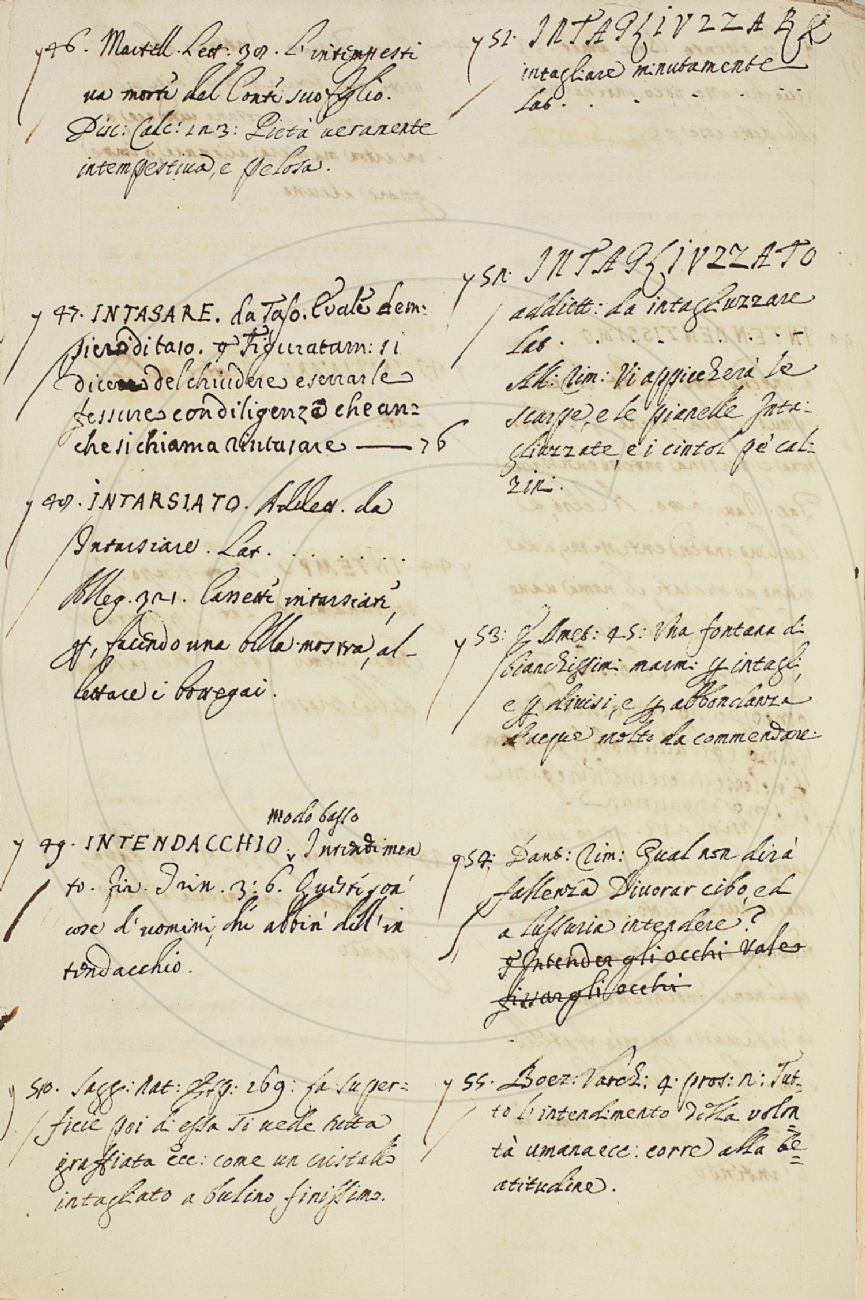 46. Martell. Lett: 38. L'intempesti
va morte del Conte suo figlio.
Disc: Calc: in 3: Pietà veramente
intempestiva, e pelosa.
47. INTASARE. da Taso.
di taso. Figuratam: si
dice del chiudere e serrar le
fessure con diligenza che an=
che si chiama rintasare — 76
48. INTARSIATO. Addiett. da
Intarsiare. Lat. . . . . . .
Alleg. 321. Cassette intarsiate,
facendo una bella mostra, al-
lettare i bottegai.
modo basso
49. INTENDACCHIO. Intendimen
to. Fir. Trin. 3: 6. Queste son
cose d'uomini, che abbin dell'in
tendacchio.
50. Sagg: nat: esp: 269: La super=
ficie poi d'essa si vede tutta
graffiata ecc: come un cristallo
intagliato a bulino finissimo.
51. INTAGLIUZZARE
intagliare minutamente
Lat. . . . . .
52. INTAGLIUZZATO
addiett: da intagliuzzare
Lat. . . . . . .
All: rim: Vi appiccherà le
scarpe, e le pianelle Inta=
gliuzzate, e i cintol pe' cal=
zin:
53: Amet: 45: Una fontana di
bianchissimi marmi per intagli,
e per divisi, e per abbondanza
d'acque molto da commendare:
54: Dant: rim: Qual non dirà
fallenza Divorar cibo, ed
a lussuria intendere?
Intender gli occhi Vale
fissar gli occhi
55: Boez: Varch: 4. pros: 2: Tut=
to l'intendimento della volon
tà umana ecc: corre alla be=
atitudine.